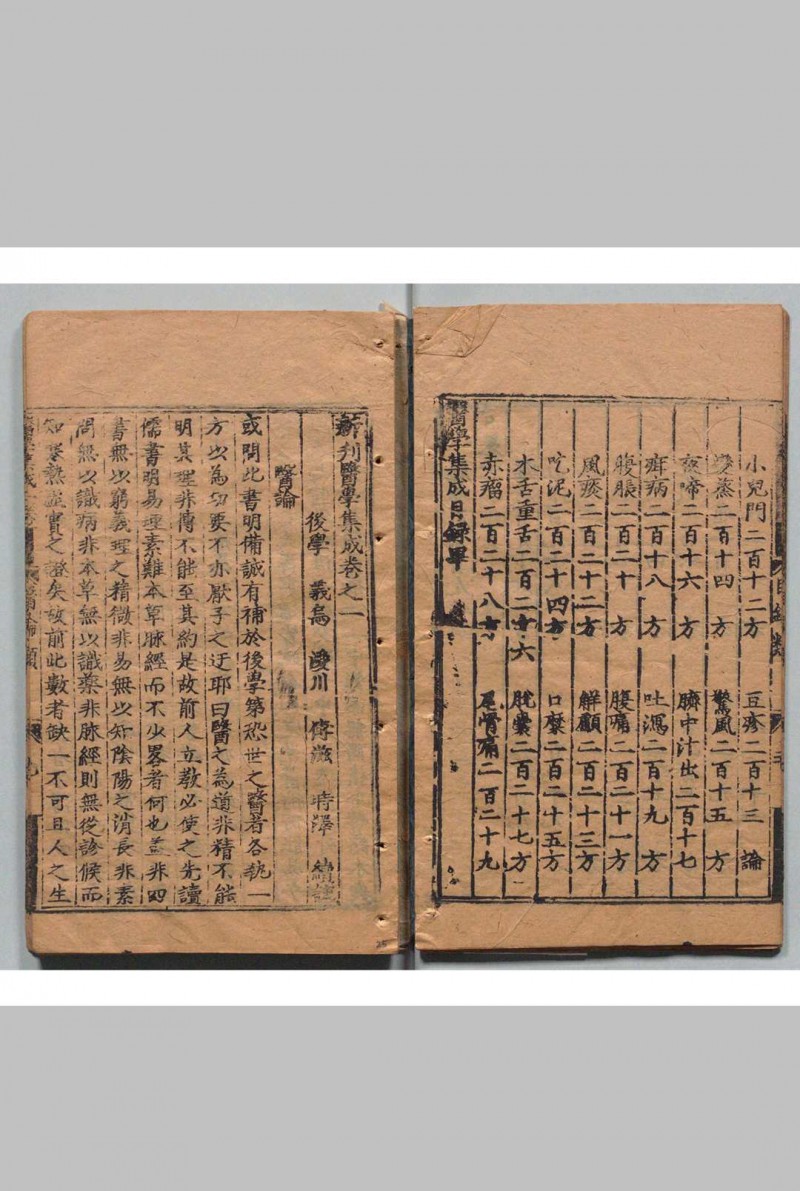 小兒門二百十二方 豆疹二百十三 論
變蒸二百十四 方 驚風二百十五 方
夜啼二百十六 方 臍中汁出二百十七
癖病二百十八 方 吐瀉二百十九 方
腹脹二百二十 方 腹痛二百二十一方
風痰二百二十二方 解顱二百二十三方
吃泥二百二十四方 口糜二百二十五方
木舌重舌二百二十六 脫囊二百二十七方
赤瘤二百二十八方 尾骨痛二百二十九
醫學集成目錄畢
新刋醫學集成卷之一
後學 義烏 浚川 傅滋 時澤
醫論
或問此書明備誠有補於後學第恐世之醫者各執一
方以為切要不亦厭子之迂耶曰醫之為道非精不能
明其理非博不能至其約是故前人立教必使之先讀
儒書明易理素難本草脉經而不少畧者何也盖非四
書無以窮義理之精微非易無以知陰陽之消長非素
問無以識病非本草無以識藥非脉經則無從診候而
知寒熱虛實之證矣故前此數者缺一不可且人之生